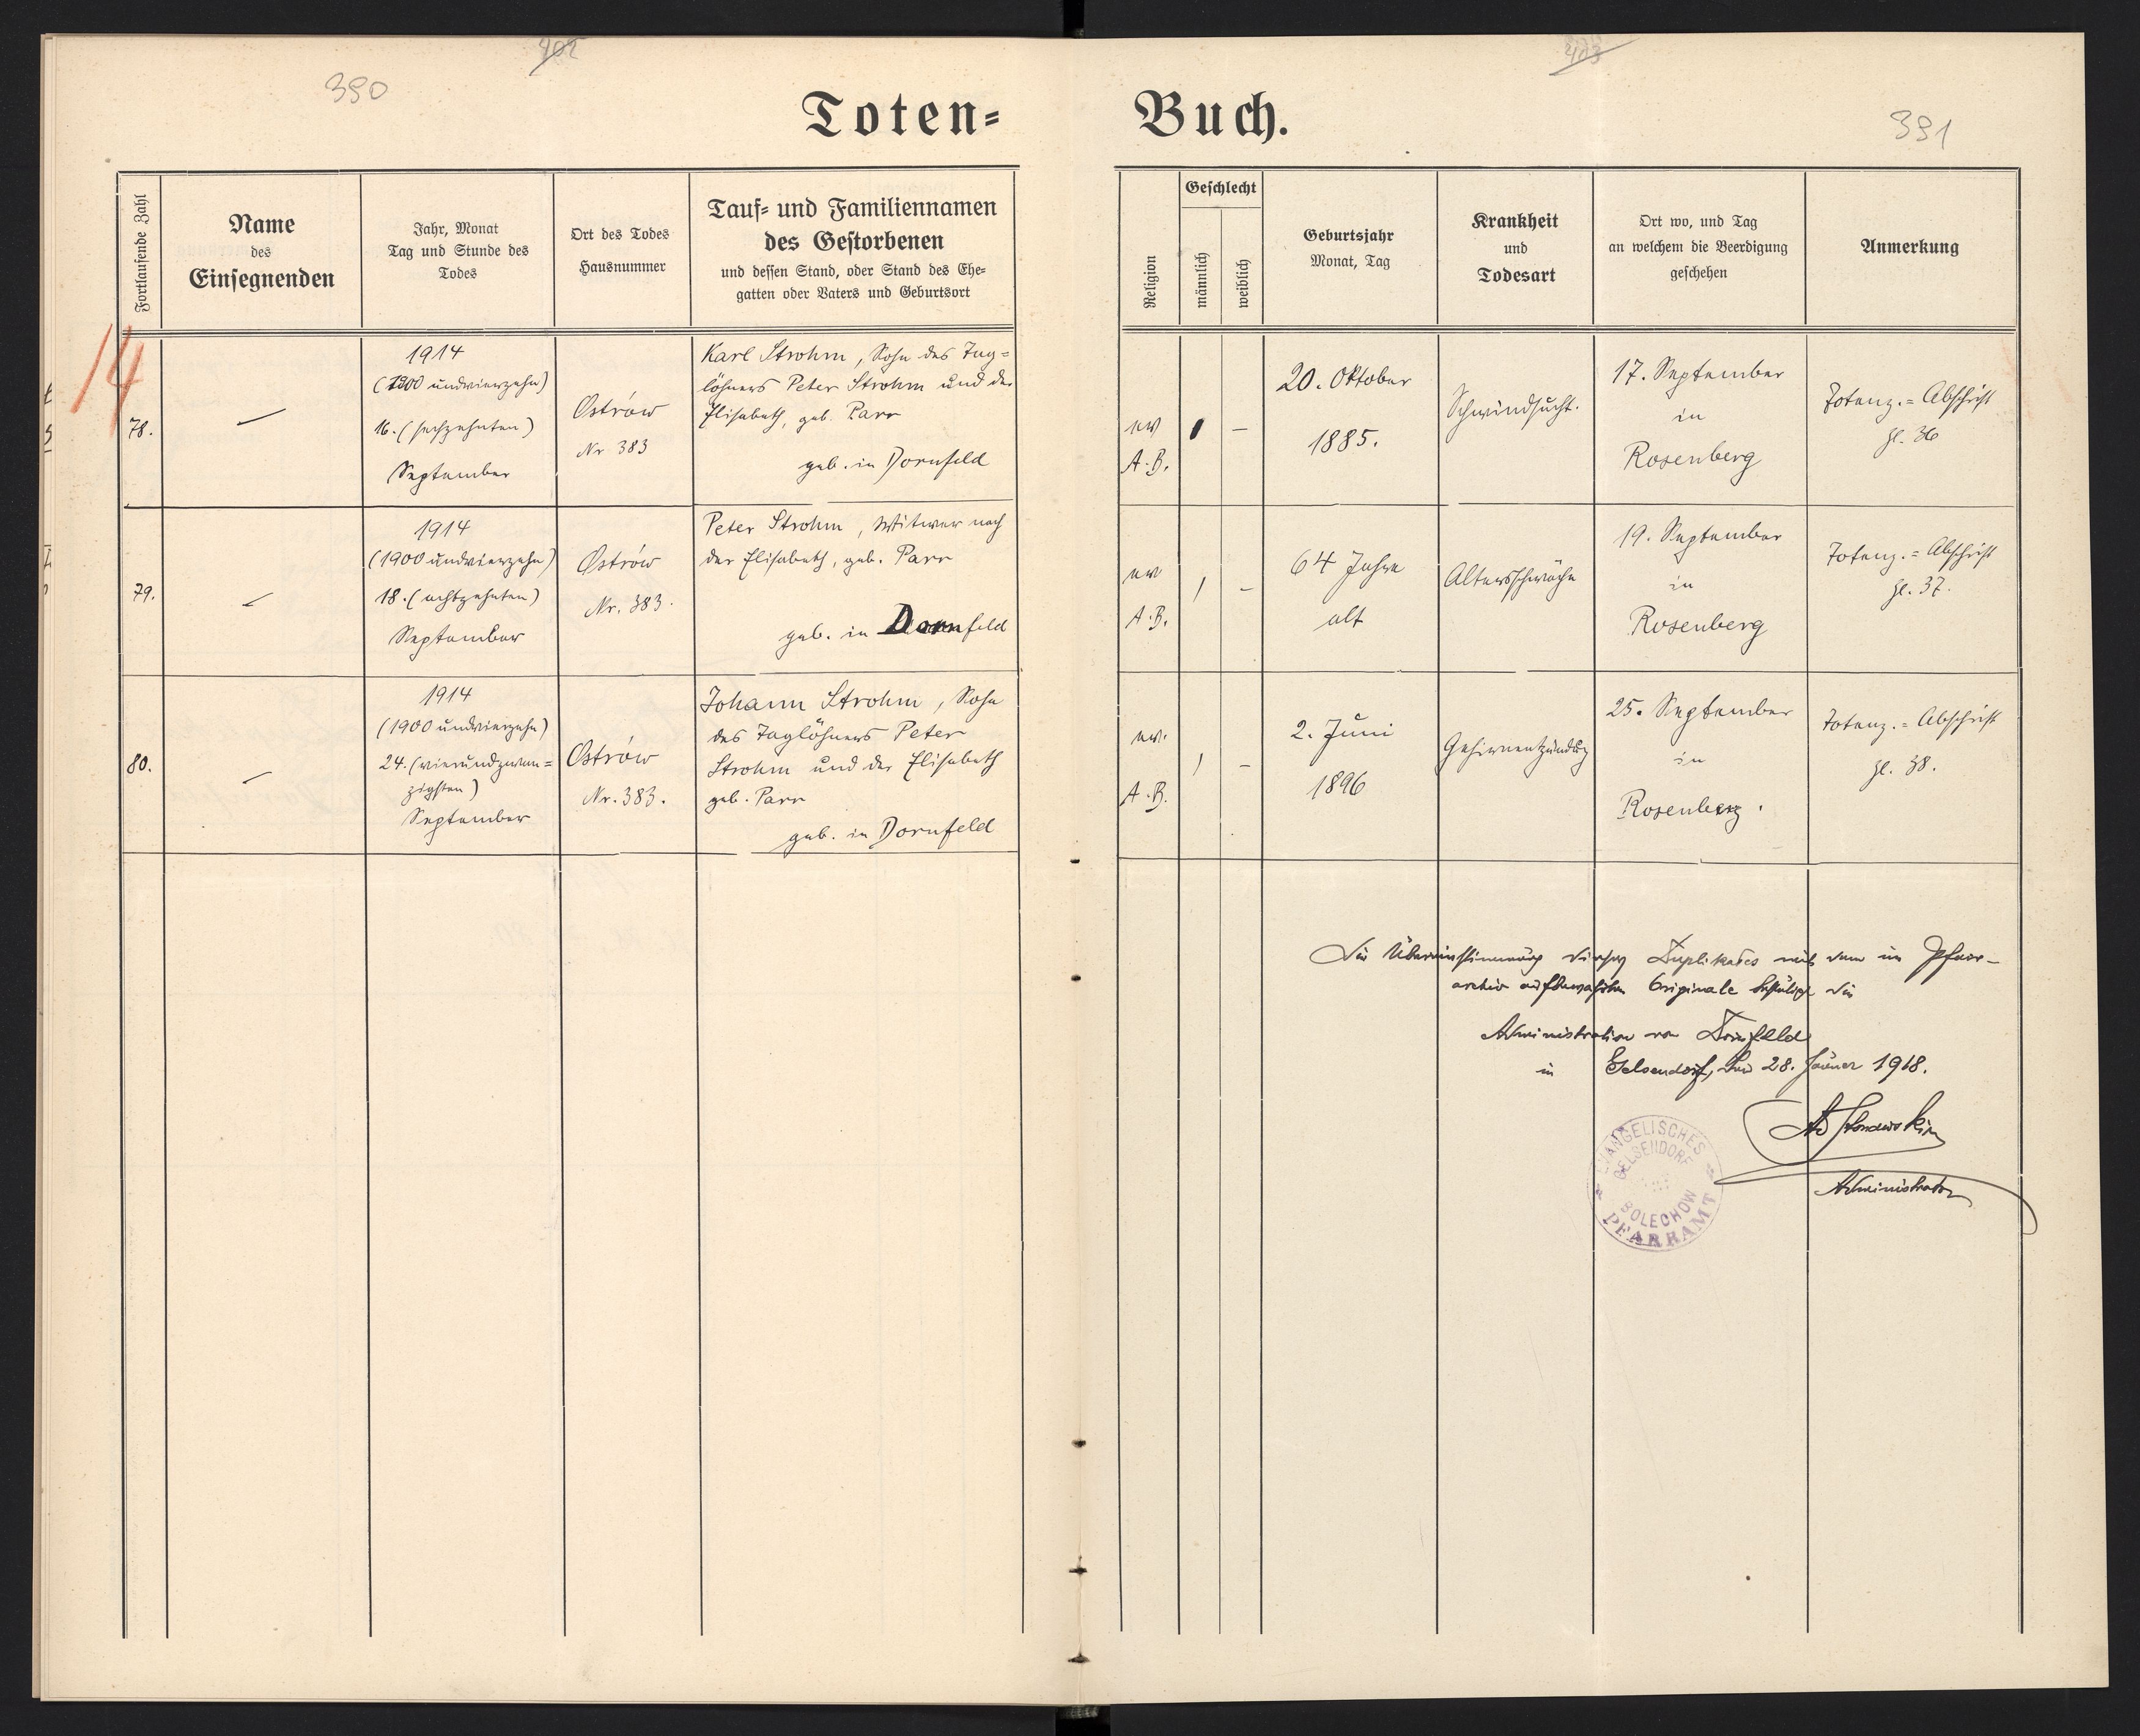 390
402
403
391
Toten=
Buch.
Fortlaufende Zahl
Name
des
Einsegnenden
Jahr, Monat
Tag und Stunde des
Todes
Ort des Todes
Hausnummer
Tauf= und Familiennamen
des Gestorbenen
und dessen Stand, oder Stand des Ehe=
gatten oder Vaters und Geburtsort
Religion
Geschlecht
männlich
weiblich
Geburtsjahr
Monat, Tag
Krankheit
und
Todesart
Ort wo, und Tag
an welchem die Beerdigung
geschehen
Anmerkung
14
78.
—
1914
(1900 undvierzehn)
16. (sechzehnten)
September
Ostrów
Nr 383
Karl Strohm, Sohn des Tag=
löhners Peter Strohm und der
Elisabeth, geb. Parr
geb. in Dornfeld
ev
A.B.
1
—
20. Oktober
1885.
Schwindsucht.
17. September
in
Rosenberg
Totenz.=Abschrift
Zl. 36
79.
—
1914
(1900 undvierzehn)
18. (achtzehnten)
September
Ostrów
Nr. 383.
Peter Strohm, Witwer nach
der Elisabeth, geb. Parr
geb. in Dornfeld
ev
A.B.
1
—
64 Jahre
alt
Altersschwäche
19. September
in
Rosenberg
Totenz.=Abschrift
Zl. 37.
80.
—
1914
(1900 undvierzehn)
24. (vierundzwan=
zigsten)
September
Ostrów
Nr. 383.
Johann Strohm, Sohn
des Taglöhners Peter
Strohm und der Elisabeth
geb. Parr
geb. in Dornfeld
ev.
A.B.
1
—
2. Juni
1896
Gehirnentzündung
25. September
in
Rosenberg.
Totenz.=Abschrift
Zl. 38.
Die Übereinstimmung dieses Duplikates mit dem im Pfarr-
archiv aufbewahrten Originale bestätigt die
Administration von Dornfeld
in Gelsendorf, den 28. Jänner 1918.
Administrator
EVANGELISCHES
GELSENDORF
BOLECHOW
PFARRAMT